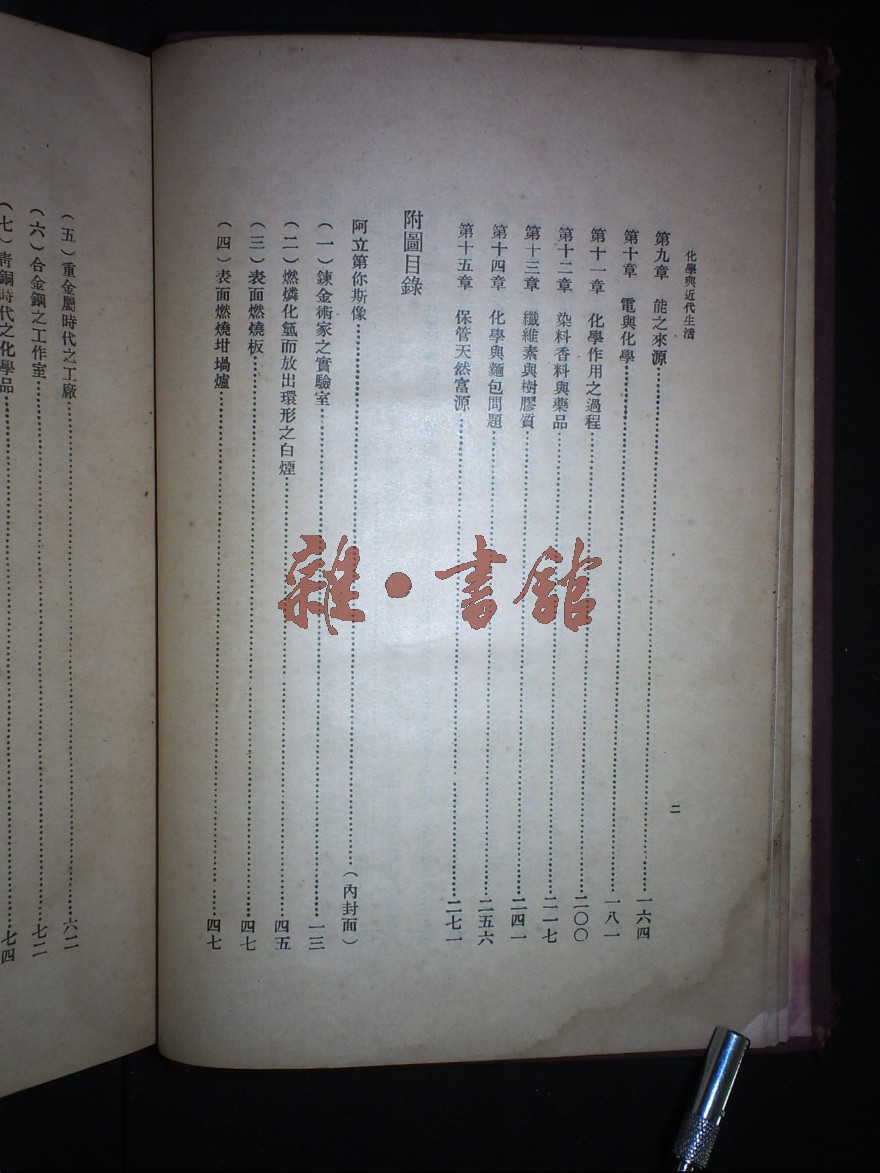 化學與近代生活
二
第九章 能之來源…………一六四
第十章 電與化學…………一八一
第十一章 化學作用之過程…………二〇〇
第十二章 染料香料與藥品…………二一七
第十三章 纖維素與樹膠質…………二四一
第十四章 化學與麵包問題…………二五六
第十五章 保管天然富源…………二七一
附圖目錄
阿立第你斯像…………(內封面)
(一)鍊金術家之實驗室…………一三
(二)燃燐化氫而放出環形之白煙…………四五
(三)表面燃燒板…………四七
(四)表面燃燒坩堝爐…………四七
(五)重金屬時代之工廠…………六二
(六)合金鋼之工作室…………七二
(七)青銅時代之化學品…………七四
雜·書館